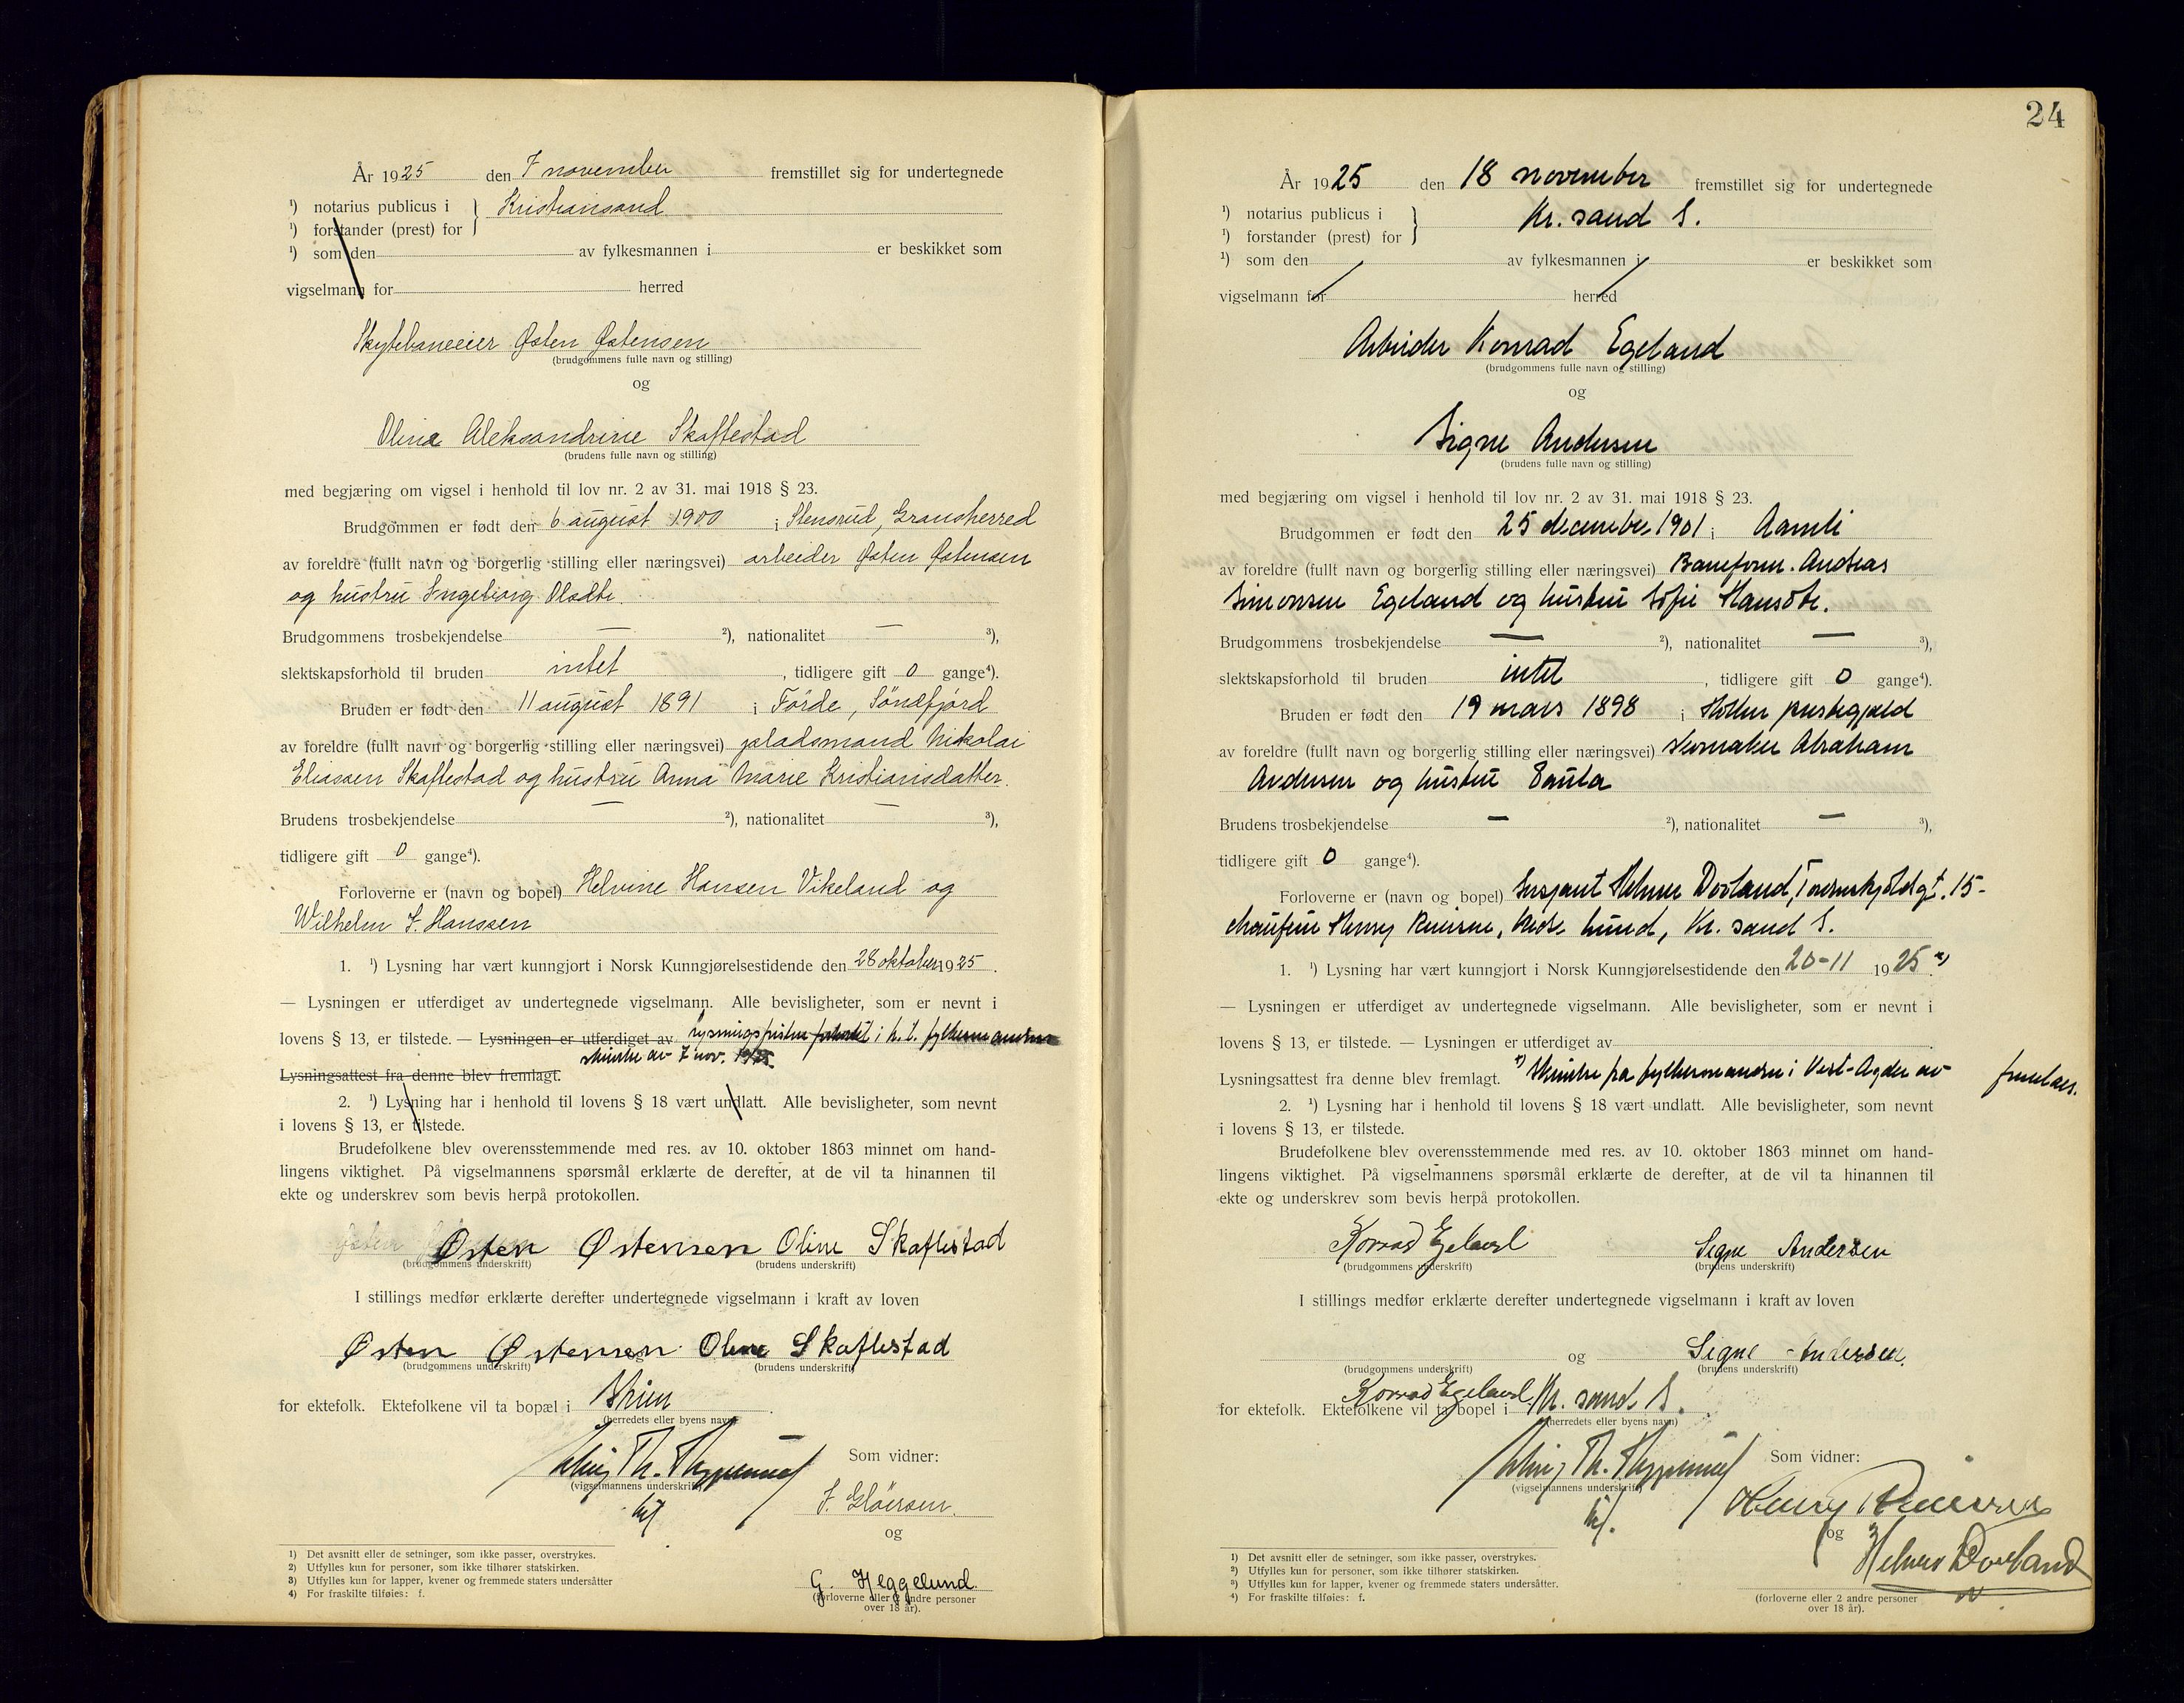 År 1925 den 7 november fremstillet sig for undertegnede
¹) notarius publicus i } Kristiansand
¹) forstander (prest) for
¹) som den av fylkesmannen i er beskikket som
vigselmann for herred
Skytebaneeier Østen Østensen
(brudgommens fulle navn og stilling)
og
Oline Aleksandrine Skaflestad
(brudens fulle navn og stilling)
med begjæring om vigsel i henhold til lov nr. 2 av 31. mai 1918 § 23.
Brudgommen er født den 6 august 1900 i Stensrud, Gransherred
av foreldre (fullt navn og borgerlig stilling eller næringsvei) arbeider Østen Østensen
og hustru Ingeborg Olsdtr.
Brudgommens trosbekjendelse — ²), nationalitet — ³),
slektskapsforhold til bruden intet, tidligere gift 0 gange⁴).
Bruden er født den 11 august 1891 i Förde, Söndfjord
av foreldre (fullt navn og borgerlig stilling eller næringsvei) pladsmand Nikolai
Eliassen Skaflestad og hustru Anna Marie Kristiansdatter.
Brudens trosbekjendelse — ²), nationalitet — ³),
tidligere gift 0 gange⁴).
Forloverne er (navn og bopel) Helvine Hansen Vikeland og
Wilhelm S. Hanssen
1. ¹) Lysning har vært kunngjort i Norsk Kunngjørelsestidende den 28 oktober 1925.
— Lysningen er utferdiget av undertegnede vigselmann. Alle bevisligheter, som er nevnt i
lovens § 13, er tilstede. — Lysningen er utferdiget av lysningsfristen forkortet i h. t. fylkesmandens
skrivelse av 7 nov. 1925.
Lysningsattest fra denne blev fremlagt.
2. ¹) Lysning har i henhold til lovens § 18 vært undlatt. Alle bevisligheter, som nevnt
i lovens § 13, er tilstede.
Brudefolkene blev overensstemmende med res. av 10. oktober 1863 minnet om hand-
lingens viktighet. På vigselmannens spørsmål erklærte de derefter, at de vil ta hinannen til
ekte og underskrev som bevis herpå protokollen.
Østen Østensen Oline Skaflestad
(brudgommens underskrift) (brudens underskrift)
I stillings medfør erklærte derefter undertegnede vigselmann i kraft av loven
Østen Østensen og Oline Skaflestad
(brudgommens underskrift) (brudens underskrift)
for ektefolk. Ektefolkene vil ta bopæl i Skien
(herredets eller byens navn)
Som vidner:
(vigselmannens underskrift)
og
G. Heggelund.
(forloverne eller 2 andre personer
over 18 år).
1) Det avsnitt eller de setninger, som ikke passer, overstrykes.
2) Utfylles kun for personer, som ikke tilhører statskirken.
3) Utfylles kun for lapper, kvener og fremmede staters undersåtter
4) For fraskilte tilføies: f.
24
År 1925 den 18 november fremstillet sig for undertegnede
¹) notarius publicus i } Kr. sand S.
¹) forstander (prest) for
¹) som den av fylkesmannen i er beskikket som
vigselmann for herred
Arbeider Konrad Egeland
(brudgommens fulle navn og stilling)
og
Signe Andersen
(brudens fulle navn og stilling)
med begjæring om vigsel i henhold til lov nr. 2 av 31. mai 1918 § 23.
Brudgommen er født den 25 december 1901 i Aamli
av foreldre (fullt navn og borgerlig stilling eller næringsvei) Baneform. Andreas
Simonsen Egeland og hustru Sofie Hansdtr.
Brudgommens trosbekjendelse — ²), nationalitet — ³),
slektskapsforhold til bruden intet, tidligere gift 0 gange⁴).
Bruden er født den 19 mars 1898 i Holum prestegjeld
av foreldre (fullt navn og borgerlig stilling eller næringsvei) Abraham
Andersen og hustru
Brudens trosbekjendelse — ²), nationalitet — ³),
tidligere gift 0 gange⁴).
Forloverne er (navn og bopel) Sersjant Helmer Dovland, Tordenskjoldsgt. 15-
chauffør Henry hund, Kr. sand S.
1. ¹) Lysning har vært kunngjort i Norsk Kunngjørelsestidende den 20-11 1925. ˣ)
— Lysningen er utferdiget av undertegnede vigselmann. Alle bevisligheter, som er nevnt i
lovens § 13, er tilstede. — Lysningen er utferdiget av
Lysningsattest fra denne blev fremlagt. ˣ) Skrivelse fra fylkesmanden i Vest-Agder av fremlaes.
2. ¹) Lysning har i henhold til lovens § 18 vært undlatt. Alle bevisligheter, som nevnt
i lovens § 13, er tilstede.
Brudefolkene blev overensstemmende med res. av 10. oktober 1863 minnet om hand-
lingens viktighet. På vigselmannens spørsmål erklærte de derefter, at de vil ta hinannen til
ekte og underskrev som bevis herpå protokollen.
Konrad Egeland Signe Andersen
(brudgommens underskrift) (brudens underskrift)
I stillings medfør erklærte derefter undertegnede vigselmann i kraft av loven
og Signe Andersen.
(brudgommens underskrift) (brudens underskrift)
Konrad Egeland
for ektefolk. Ektefolkene vil ta bopel i Kr. sand S.
(herredets eller byens navn)
Som vidner:
(vigselmannens underskrift)
Henry
og
Helmer Dovland
(forloverne eller 2 andre personer
over 18 år).
1) Det avsnitt eller de setninger, som ikke passer, overstrykes.
2) Utfylles kun for personer, som ikke tilhører statskirken.
3) Utfylles kun for lapper, kvener og fremmede staters undersåtter.
4) For fraskilte tilføies: f.